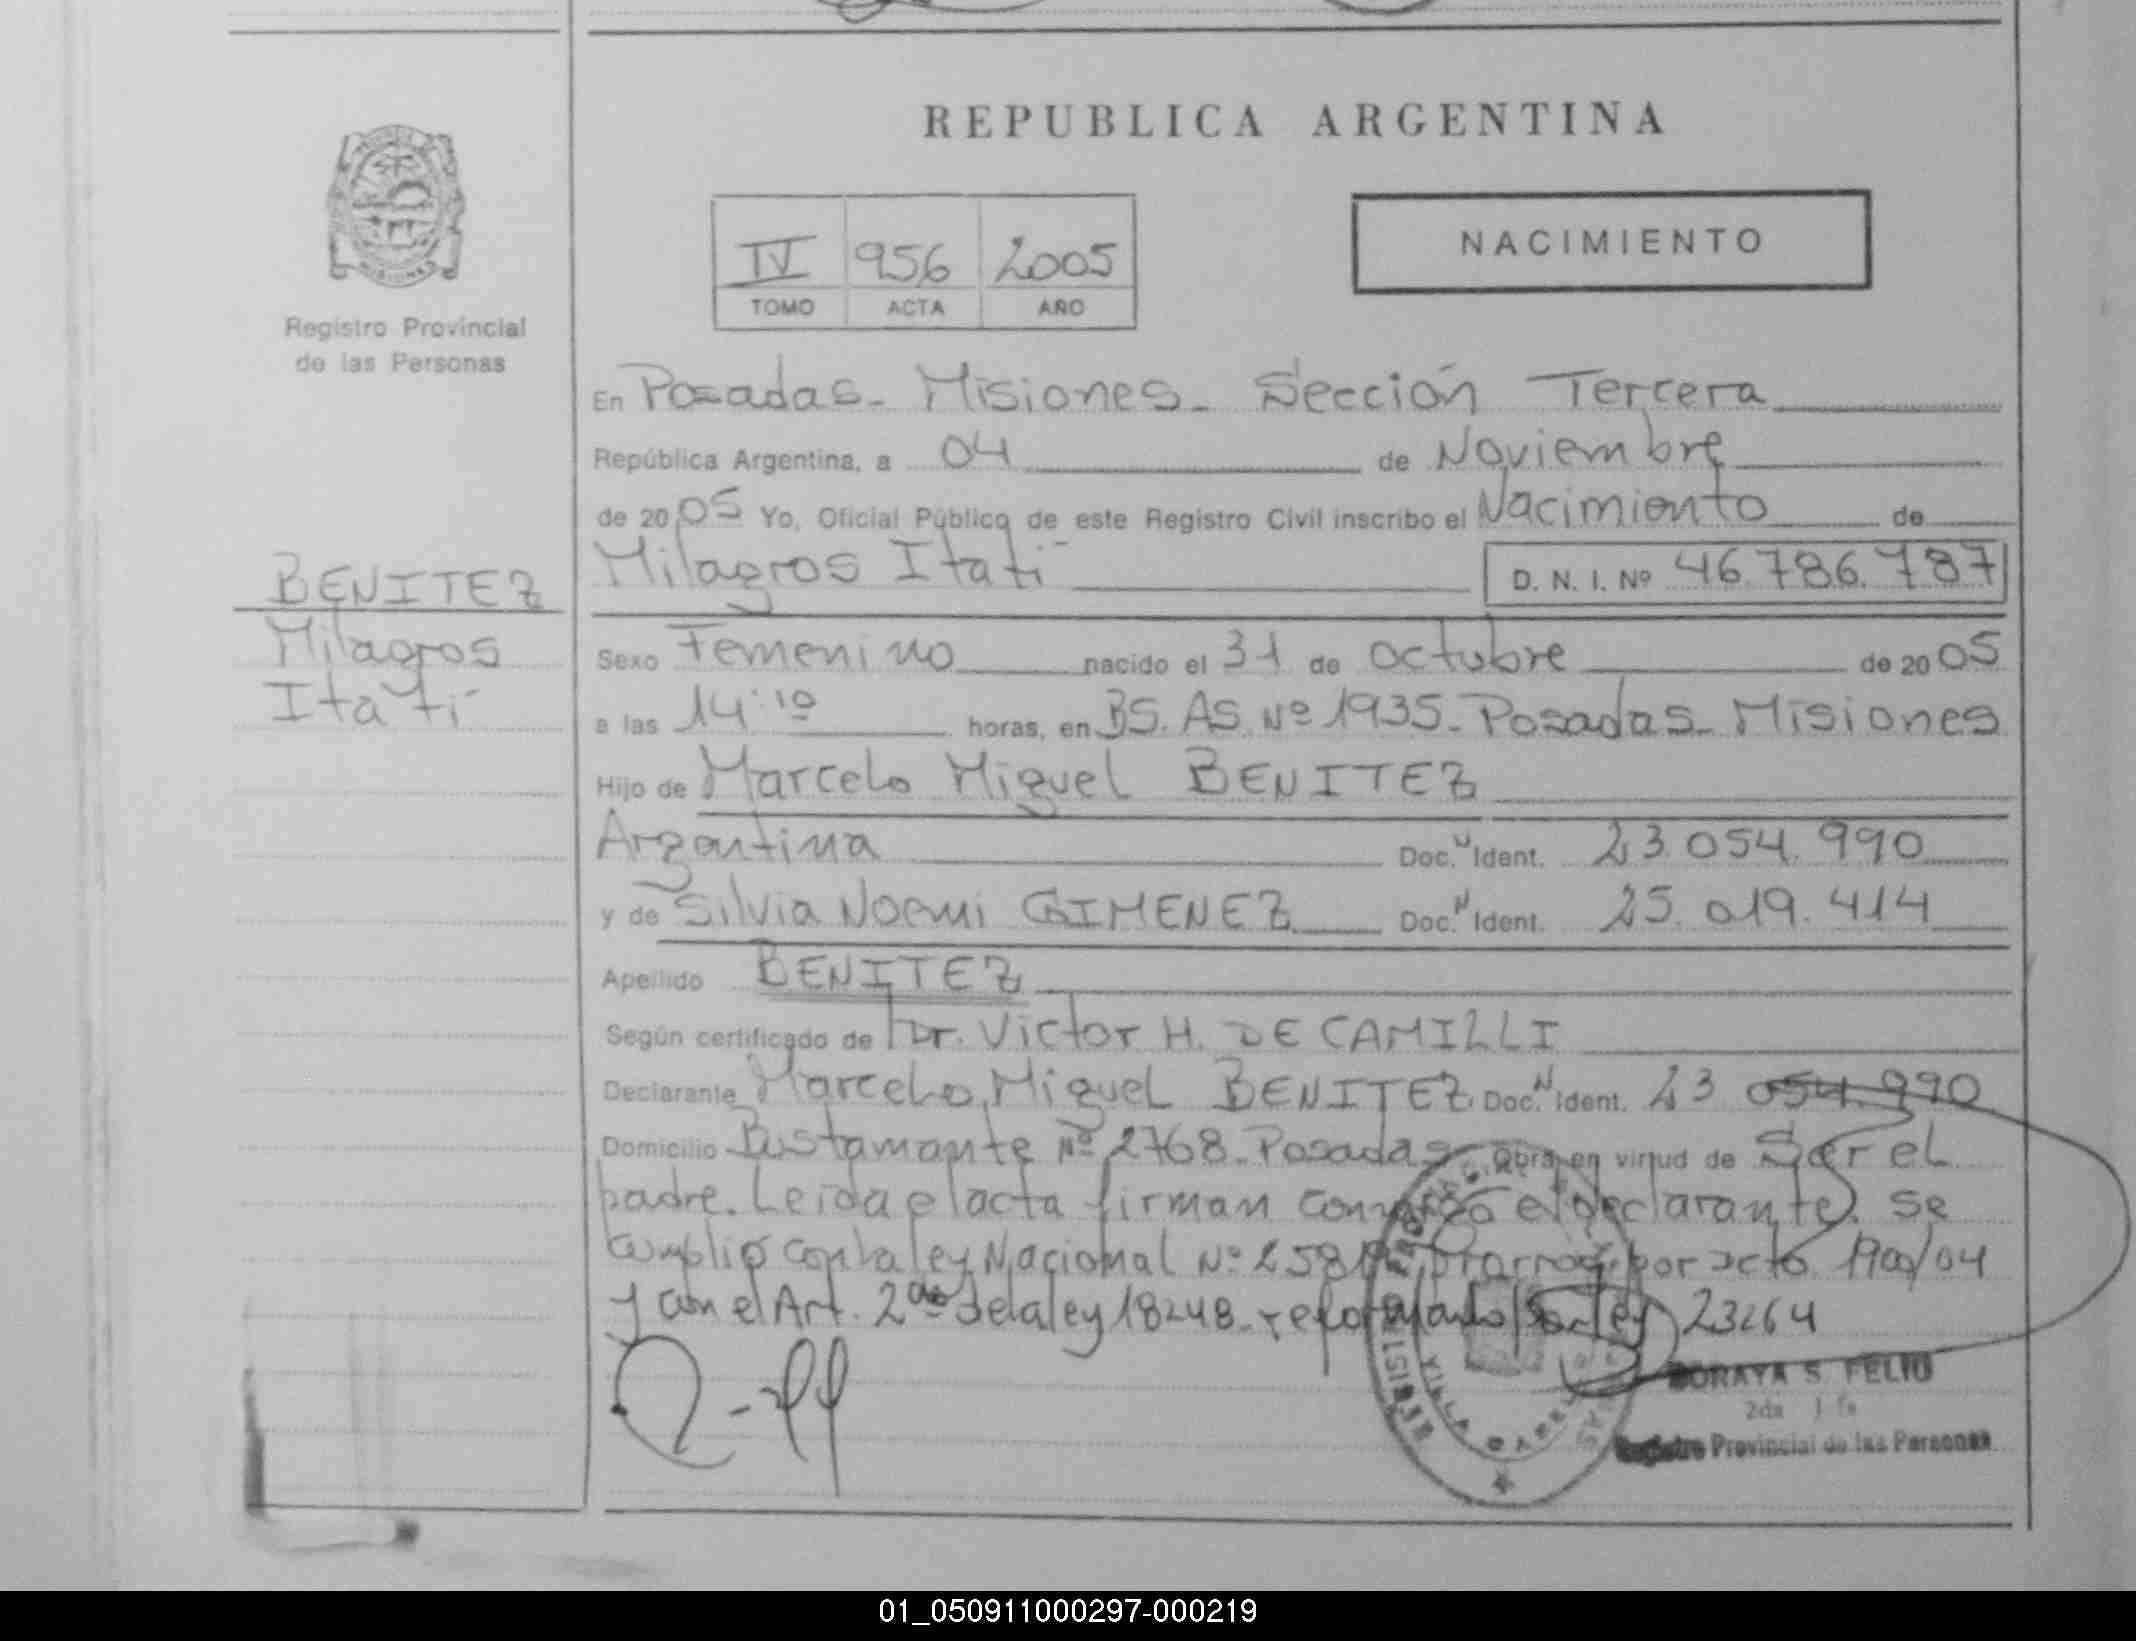 REPUBLICA ARGENTINA
MISIONES
Registro Provincial
de las Personas
IV 956 2005
TOMO ACTA AÑO
NACIMIENTO
En Posadas - Misiones - Sección Tercera
República Argentina, a 04 de Noviembre
de 2005 Yo, Oficial Público de este Registro Civil inscribo el Nacimiento de
BENITEZ
Milagros
Itatí
Milagros Itatí D. N. I. Nº 46.786.787
Sexo Femenino nacido el 31 de octubre de 2005
a las 14:10 horas, en BS. AS. Nº 1935 - Posadas - Misiones
Hijo de Marcelo Miguel BENITEZ
Argentina Doc. N Ident. 23.054.990
y de Silvia Noemi GIMENEZ Doc. N Ident. 25.019.414
Apellido BENITEZ
Según certificado de Dr. Victor H. DE CAMILLI
Declarante Marcelo Miguel BENITEZ Doc. N Ident. 23 054.990
Domicilio Bustamante Nº 2768 - Posadas - Obra en virtud de Ser el
padre. Leida el acta firman conmigo el declarante. Se
cumplió con la ley Nacional Nº por 1900/04
y con el Art. 2 de la ley 18248 - ley 23264
SORAYA S. FELIU
2da
Registro Provincial de las Personas
01_050911000297-000219